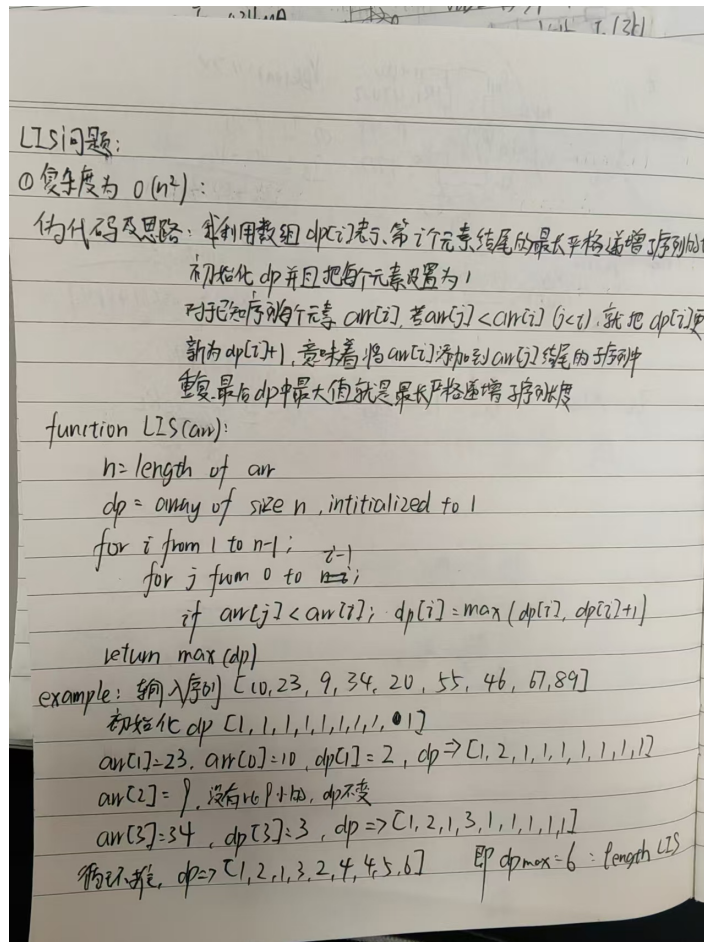 LIS问题:
① 复杂度为 O(n²):
伪代码及思路: 我利用数组 dp[i]表示、第i个元素结尾的最长严格递增子序列的
初始化 dp 并且把每个元素设置为 1
对于已知序列每个元素 arr[i], 若arr[j]<arr[i] (j<i), 就把 dp[i]更
新为dp[i]+1, 意味着将arr[i]添加到arr[j]结尾的子序列中
重复.最后dp中最大值就是最长严格递增子序列长度
function LIS(arr):
n= length of arr
dp = array of size n, intitialized to 1
for i from 1 to n-1;
for j from 0 to i-1;
if arr[j]<arr[i]; dp[i]=max(dp[i], dp[i]+1)
return max(dp)
example: 输入序列 [10, 23, 9, 34, 20, 55, 46, 67, 89]
初始化 dp [1, 1, 1, 1, 1, 1, 1, 1, 1]
arr[1]=23, arr[0]=10, dp[1]=2, dp⇒[1, 2, 1, 1, 1, 1, 1, 1, 1]
arr[2]=9, 没有比9小的, dp不变
arr[3]=34, dp[3]=3, dp=>[1, 2, 1, 3, 1, 1, 1, 1, 1]
循环 dp=>[1, 2, 1, 3, 2, 4, 4, 5, 6] 即 dpmax=6 = length LIS